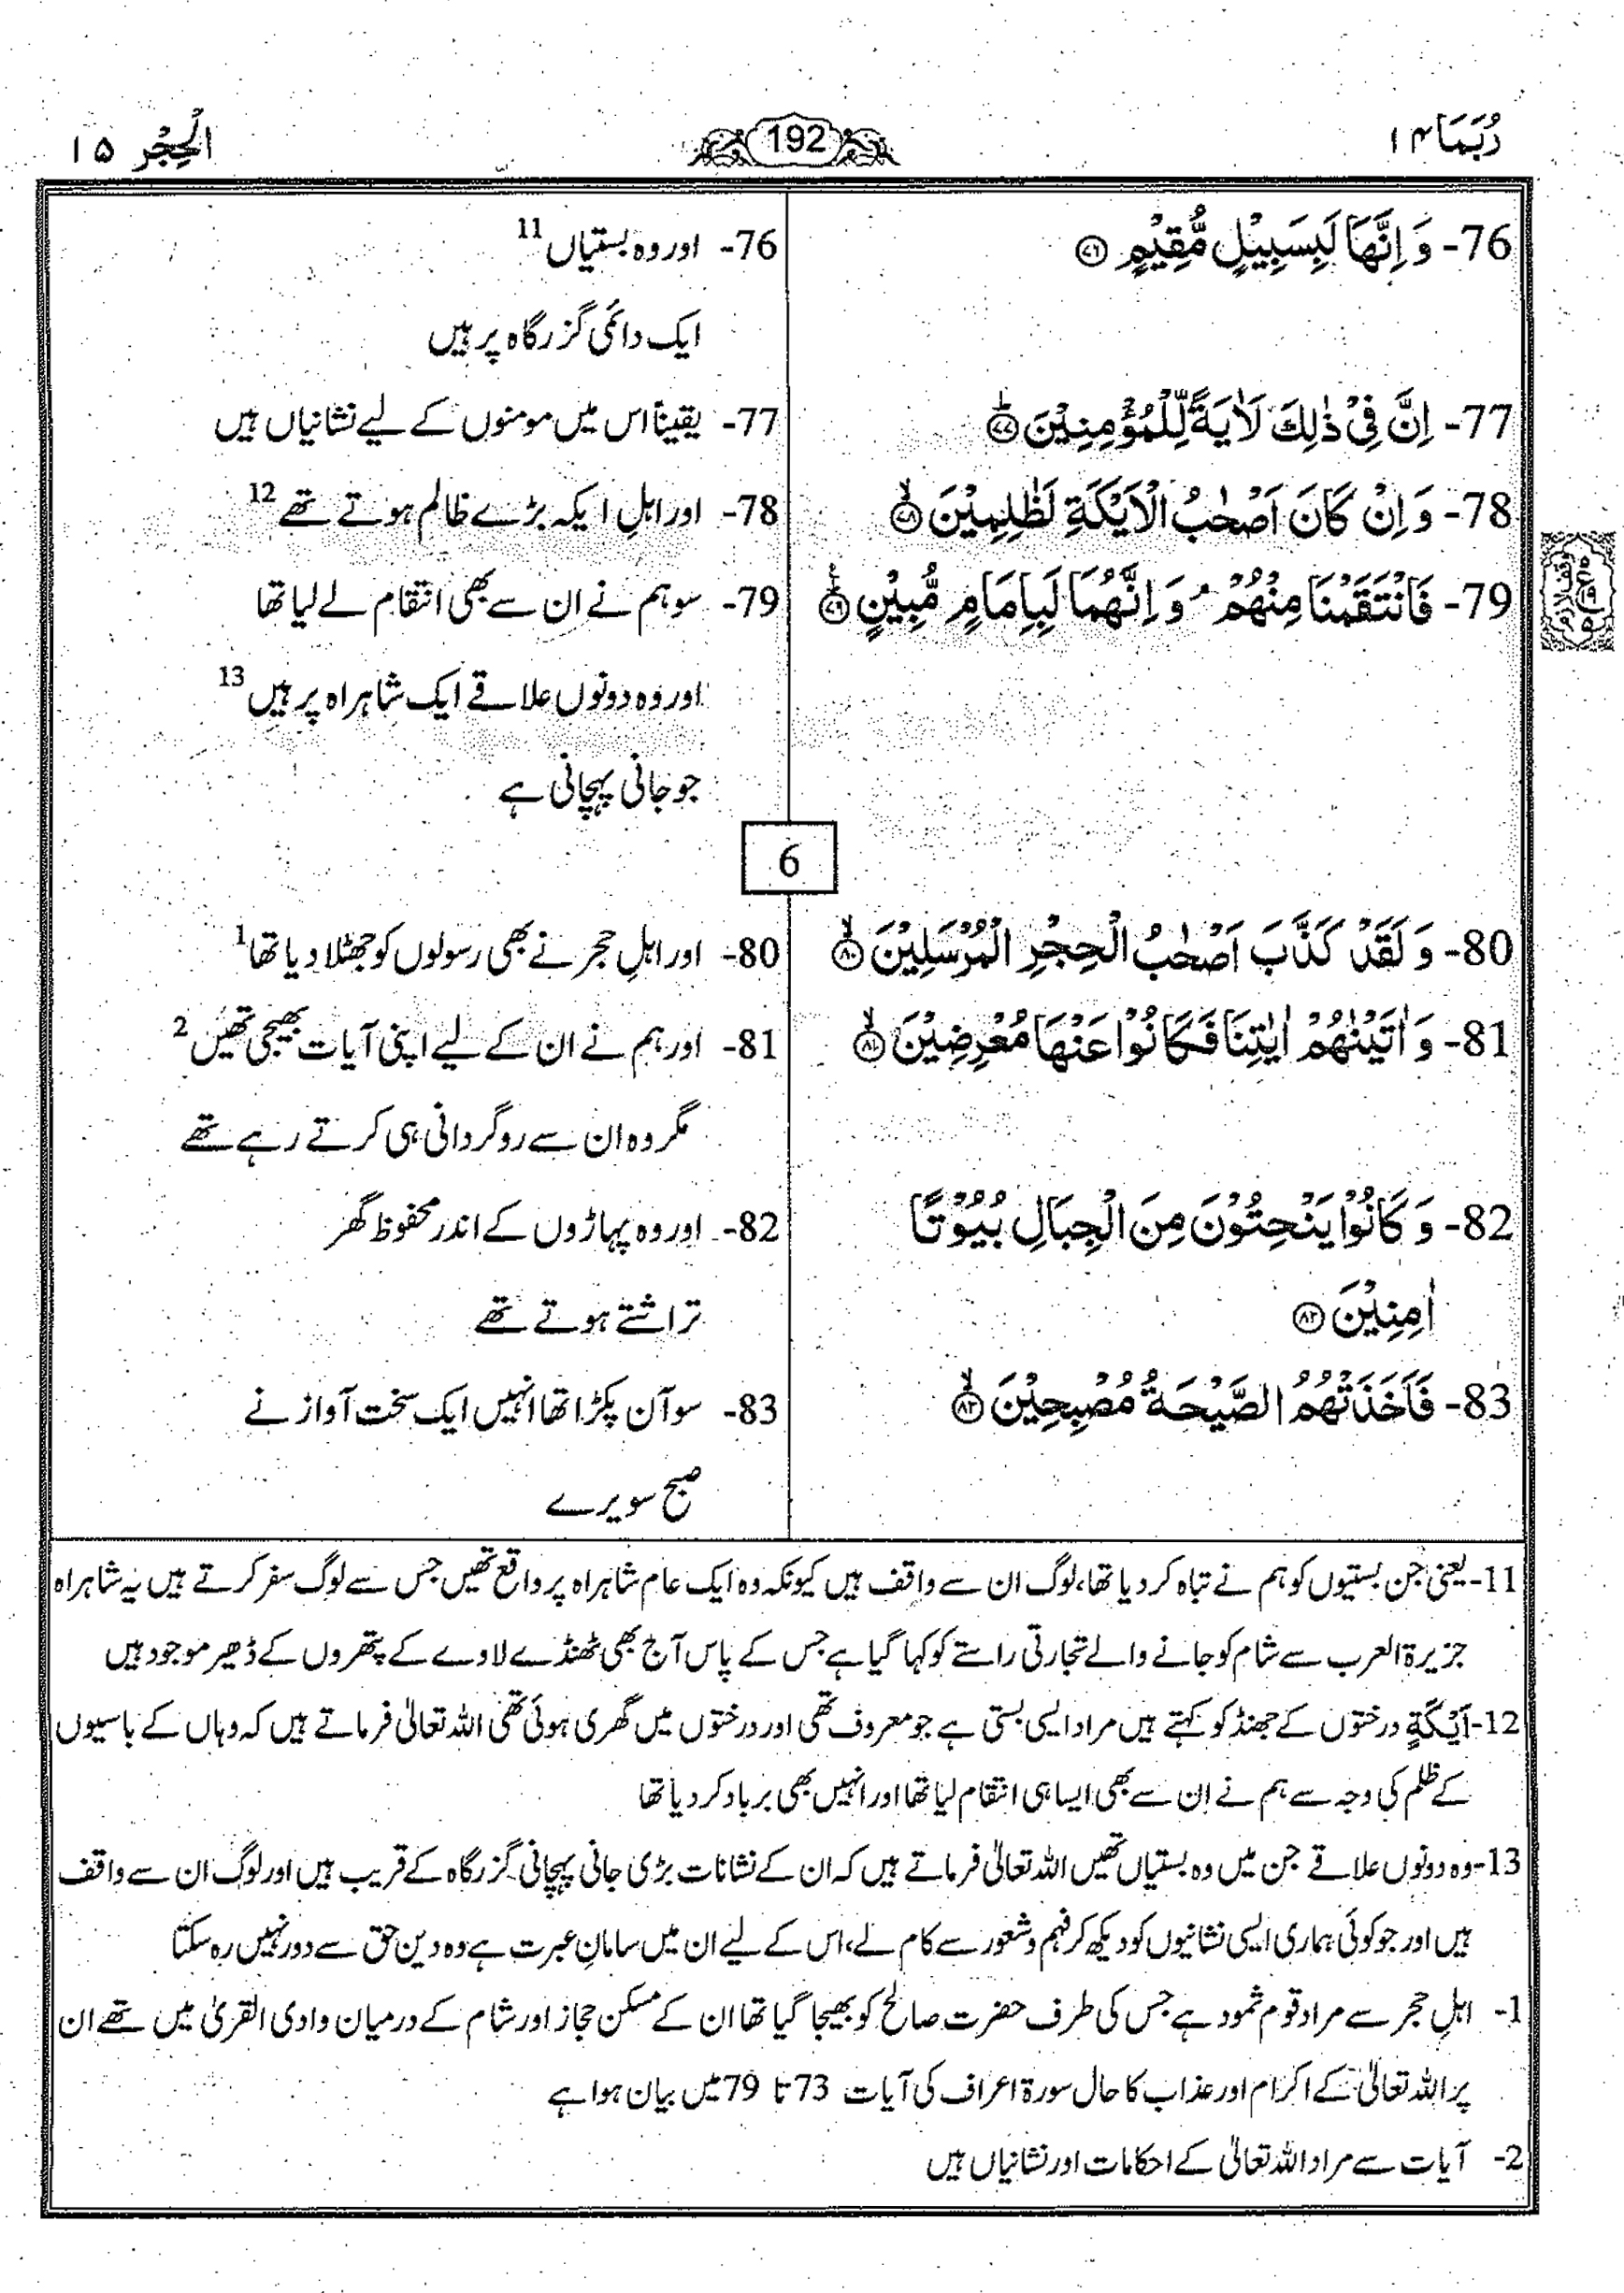 رُبَمَا ۱۴
192
الْحِجْر ۱۵
76- وَ اِنَّهَا لَبِسَبِيْلٍ مُّقِيْمٍ ۝۷۶
76- اور وہ بستیاں 11
ایک دائمی گزرگاہ پر ہیں
77- اِنَّ فِيْ ذٰلِكَ لَاٰيَةً لِّلْمُؤْمِنِيْنَ ؕ۝۷۷
77- یقیناً اس میں مومنوں کے لیے نشانیاں ہیں
78- وَ اِنْ كَانَ اَصْحٰبُ الْاَيْكَةِ لَظٰلِمِيْنَ ۙ۝۷۸
78- اور اہلِ ایکہ بڑے ظالم ہوتے تھے 12
79- فَانْتَقَمْنَا مِنْهُمْ ۘ وَ اِنَّهُمَا لَبِاِمَامٍ مُّبِيْنٍ ؕ۝۷۹
79- سو ہم نے ان سے بھی انتقام لے لیا تھا
اور وہ دونوں علاقے ایک شاہراہ پر ہیں 13
جو جانی پہچانی ہے
6
80- وَ لَقَدْ كَذَّبَ اَصْحٰبُ الْحِجْرِ الْمُرْسَلِيْنَ ۙ۝۸۰
80- اور اہلِ حجر نے بھی رسولوں کو جھٹلا دیا تھا 1
81- وَ اٰتَيْنٰهُمْ اٰيٰتِنَا فَكَانُوْا عَنْهَا مُعْرِضِيْنَ ۙ۝۸۱
81- اور ہم نے ان کے لیے اپنی آیات بھیجی تھیں 2
مگر وہ ان سے روگردانی ہی کرتے رہے تھے
82- وَ كَانُوْا يَنْحِتُوْنَ مِنَ الْجِبَالِ بُيُوْتًا
اٰمِنِيْنَ ۝۸۲
82- اور وہ پہاڑوں کے اندر محفوظ گھر
تراشتے ہوتے تھے
83- فَاَخَذَتْهُمُ الصَّيْحَةُ مُصْبِحِيْنَ ۙ۝۸۳
83- سو آن پکڑا تھا انہیں ایک سخت آواز نے
صبح سویرے
11- یعنی جن بستیوں کو ہم نے تباہ کر دیا تھا، لوگ ان سے واقف ہیں کیونکہ وہ ایک عام شاہراہ پر واقع تھیں جس سے لوگ سفر کرتے ہیں یہ شاہراہ
جزیرۃ العرب سے شام کو جانے والے تجارتی راستے کو کہا گیا ہے جس کے پاس آج بھی ٹھنڈے لاوے کے پتھروں کے ڈھیر موجود ہیں
12- اَيْكَةٍ درختوں کے جھنڈ کو کہتے ہیں مراد ایسی بستی ہے جو معروف تھی اور درختوں میں گھری ہوئی تھی اللہ تعالیٰ فرماتے ہیں کہ وہاں کے باسیوں
کے ظلم کی وجہ سے ہم نے ان سے بھی ایسا ہی انتقام لیا تھا اور انہیں بھی برباد کر دیا تھا
13- وہ دونوں علاقے جن میں وہ بستیاں تھیں اللہ تعالیٰ فرماتے ہیں کہ ان کے نشانات بڑی جانی پہچانی گزرگاہ کے قریب ہیں اور لوگ ان سے واقف
ہیں اور جو کوئی ہماری ایسی نشانیوں کو دیکھ کر فہم و شعور سے کام لے، اس کے لیے ان میں سامانِ عبرت ہے وہ دین حق سے دور نہیں رہ سکتا
1- اہلِ حجر سے مراد قوم ثمود ہے جس کی طرف حضرت صالح کو بھیجا گیا تھا ان کے مسکن حجاز اور شام کے درمیان وادی القریٰ میں تھے ان
پر اللہ تعالیٰ کے اکرام اور عذاب کا حال سورۃ اعراف کی آیات 73 تا 79 میں بیان ہوا ہے
2- آیات سے مراد اللہ تعالیٰ کے احکامات اور نشانیاں ہیں